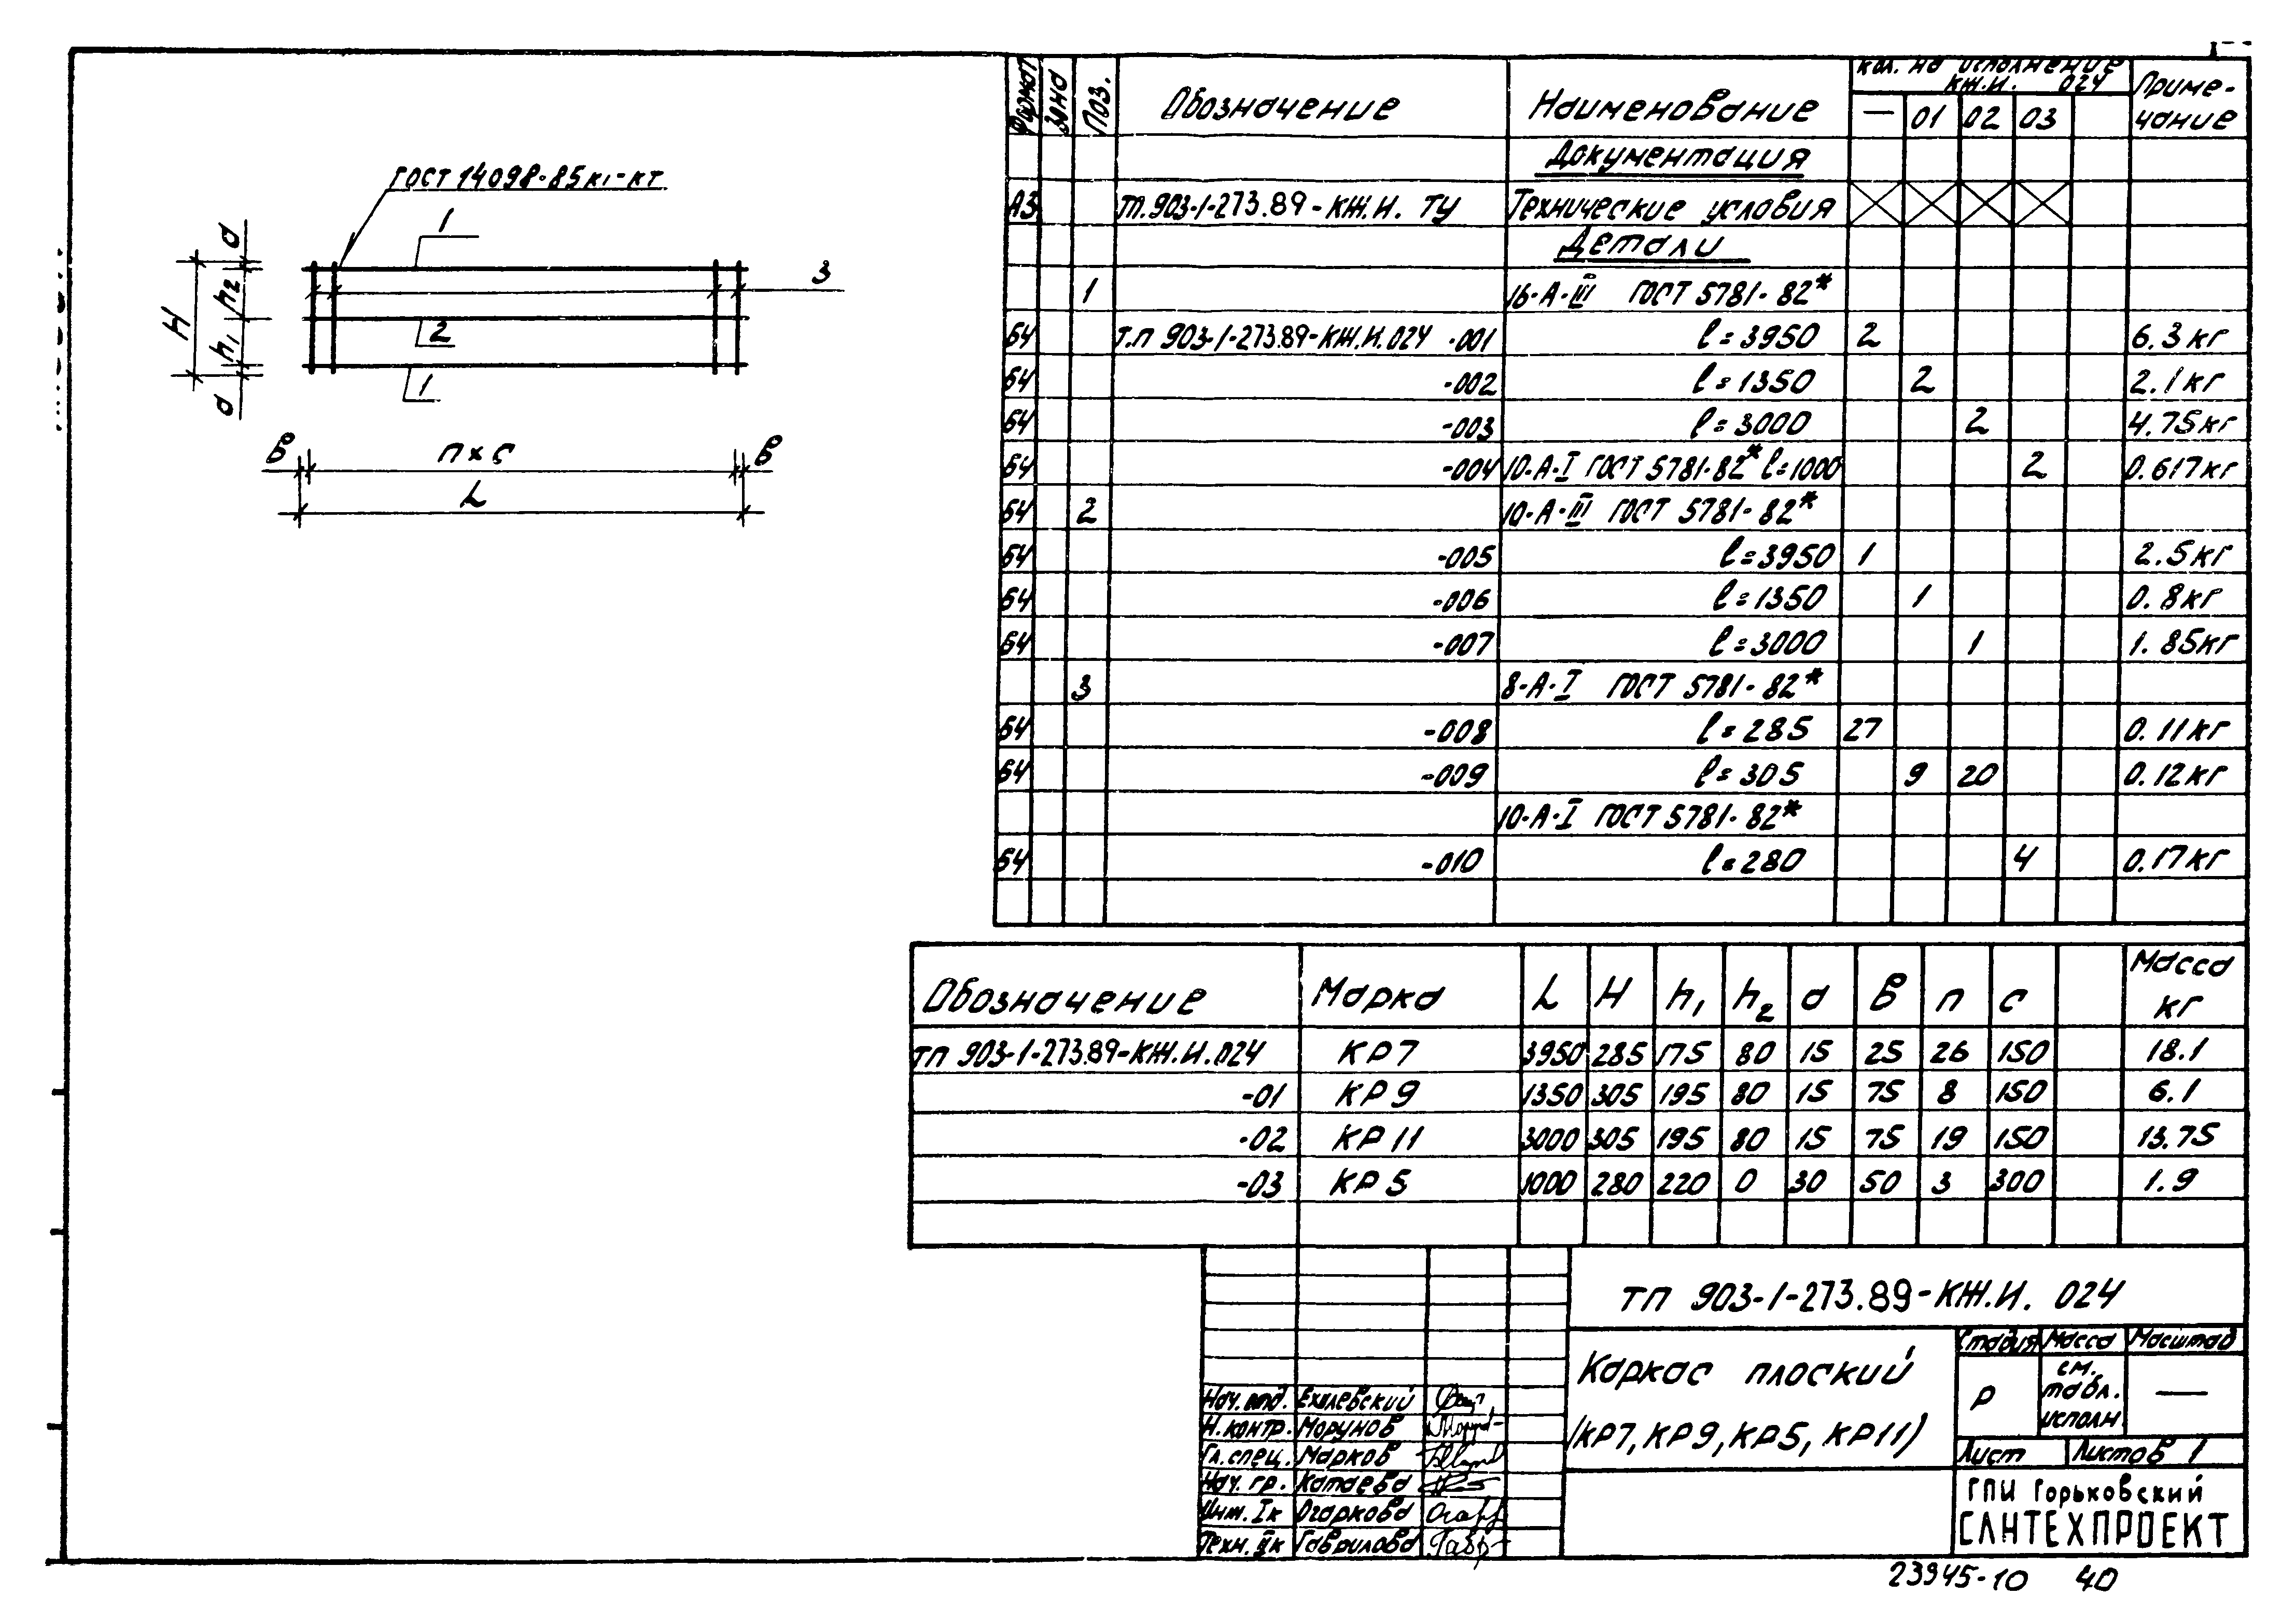 ГОСТ 14098-85 к1-кт
1
3
2
1
d
h2
H
h1
d
в
n×c
в
L
Формат Зона Поз. Обозначение Наименование Кол. на исполнение КЖ.И. 024 Приме-чание
— 01 02 03
Документация
А3 ТП.903-1-273.89-КЖ.И. ТУ Технические условия
Детали
1 16-А-III ГОСТ 5781-82*
Б4 Т.П 903-1-273.89-КЖ.И.024 -001 l=3950 2 6.3кг
Б4 -002 l=1350 2 2.1кг
Б4 -003 l=3000 2 4.75кг
Б4 -004 10-А-I ГОСТ 5781-82* l=1000 2 0.617кг
Б4 2 10-А-III ГОСТ 5781-82*
Б4 -005 l=3950 1 2.5кг
Б4 -006 l=1350 1 0.8кг
Б4 -007 l=3000 1 1.85кг
3 8-А-I ГОСТ 5781-82*
Б4 -008 l=285 27 0.11кг
Б4 -009 l=305 9 20 0.12кг
10-А-I ГОСТ 5781-82*
Б4 -010 l=280 4 0.17кг
Обозначение Марка L H h1 h2 d в n c Масса кг
ТП 903-1-273.89-КЖ.И.024 КР7 3950 285 175 80 15 25 26 150 18.1
-01 КР9 1350 305 195 80 15 75 8 150 6.1
-02 КР11 3000 305 195 80 15 75 19 150 13.75
-03 КР5 1000 280 220 0 30 50 3 300 1.9
ТП 903-1-273.89-КЖ.И. 024
Каркас плоский
(КР7, КР9, КР5, КР11)
Стадия Масса Масштаб
Р см. табл. исполн —
Лист Листов 1
ГПИ Горьковский
САНТЕХПРОЕКТ
Нач. отд. Ехилевский
Н.контр. Морунов
Гл.спец. Марков
Нач. гр. Катаева
Инж. Iк Огаркова
Техн. IIк Гаврилова
23945-10 40